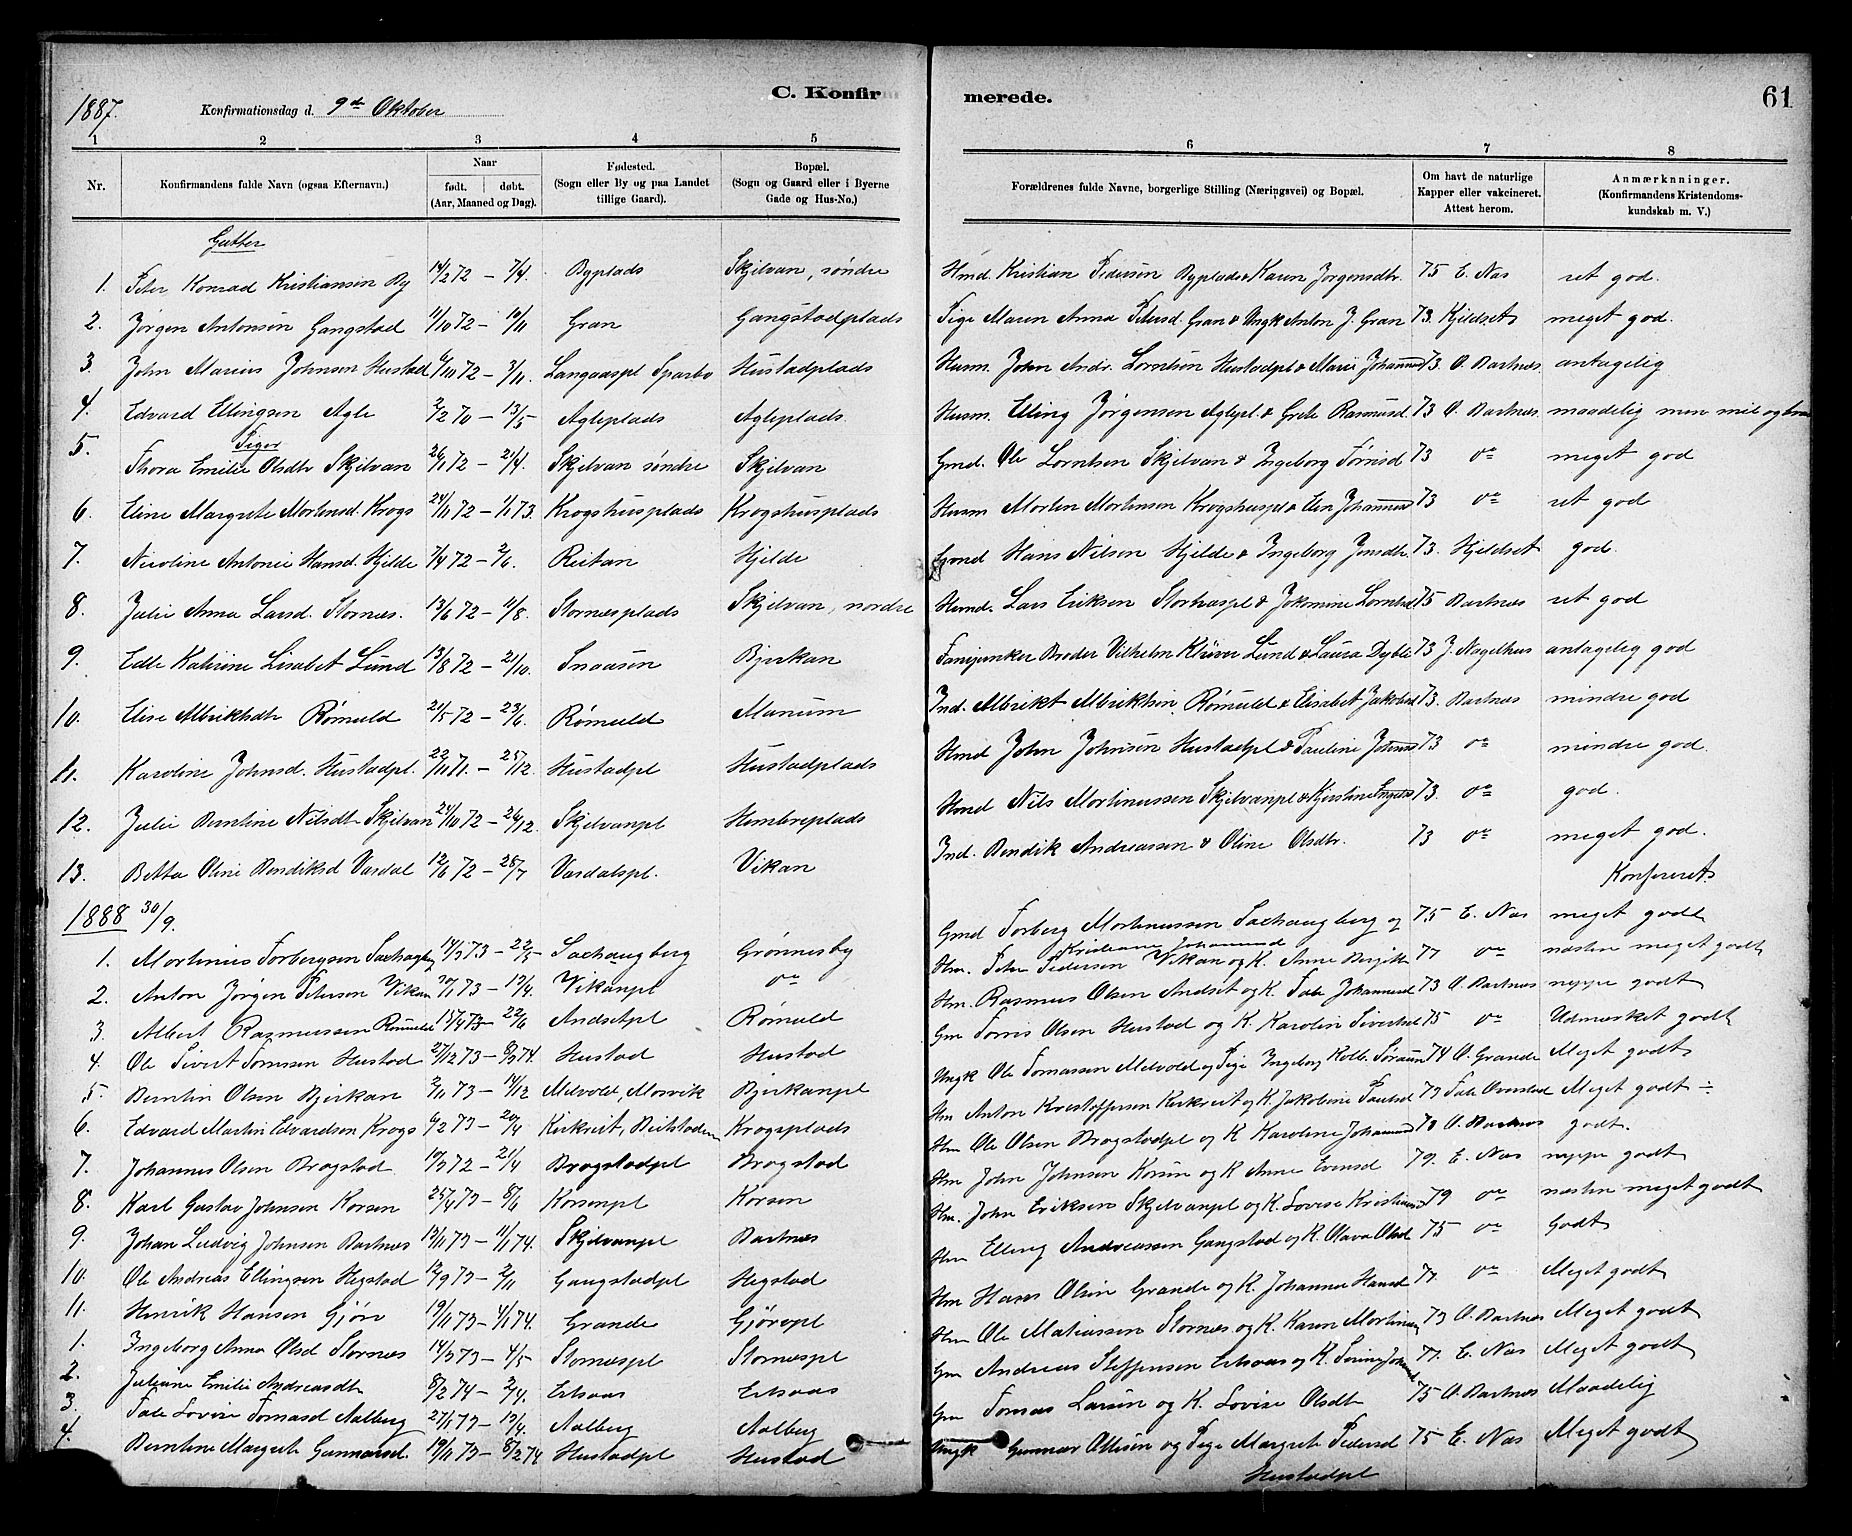 1887. Konfirmationsdag d. 9de Oktober C. Konfirmerede. 61
1 2 3 4 5 6 7 8
Nr. Konfirmandens fulde Navn (ogsaa Efternavn.) Naar født. døbt. (Aar, Maaned og Dag). Fødested. (Sogn eller By og paa Landet tillige Gaard). Bopæl. (Sogn og Gaard eller i Byerne Gade og Hus-No.) Forældrenes fulde Navne, borgerlige Stilling (Næringsvei) og Bopæl. Om havt de naturlige Kapper eller vakcineret. Attest herom. Anmærknninger. (Konfirmandens Kristendomskundskab m. V.)
Gutter
1. Peter Konrad Kristiansen By 14/2 72 – 7/4. Byplads Skjelvan, søndre Hmd Kristian Pedersen Byplads & Karen Jørgensdtr. 75 E. Næs ret god.
2. Jørgen Antonsen Gangstad 11/10 72 – 10/11 Gran Gangstadplads Pige Maren Anna Petersd. Gran & Ungk Anton J. Gran 73. Kjeldset meget god.
3. John Marius Johnsen Hustad 6/10 72 – 3/11. Langaaspl Sparbo Hustadplads Husm. John Andr. Lorntsen Hustadpl & Marie Johannesd 73. O. Bartnæs. antagelig
4. Edvard Ellingsen Agle 2/2 70 – 13/5 Agleplads Agleplads. Husm. Elling Jørgensen Aglepl & Grete Rasmusd. 73 O. Bartnæs. maadelig men
Piger
5. Thora Emilie Olsdtr Skjelvan 26/1 72 – 21/4. Skjelvan søndre Skjelvan Gmd. Ole Lorntsen Skjelvan & Ingeborg Tørrisd 73 do meget god
6. Eline Margrete Mortensd. Krogs 24/11 72 – 1/1 73. Krogshusplads Krogshusplads Husm Morten Mortensen Krogshuspl & Elen Johannesd 73 do ret god
7. Nicoline Antonie Hansd. Hjelde 7/4 72 – 2/6. Reitan Hjelde Gmd Hans Nilsen Hjelde & Ingeborg Jonsdtr. 73. Hjeldset god.
8. Julie Anna Larsd. Stornæs. 13/6 72 – 11/8. Stornæsplads Skjelvan, nordre Husmd. Lars Eriksen Stornæspl & Jokomine Lorntsd 75 Bartnæs ret god
9. Edle Katrine Lisabet Lund 13/8 72 – 21/10. Snaasen Bjerkan Fanejunker Broder Vilhelm Klüver Lund & Laura Dyblie 73 J. Nagelhus antagelig god
10. Elise Albriktsdtr Rømuld 21/5 72 – 23/6. Rømuld Manum Ind. Albrikt Albriktsen Rømuld & Elisabet Jakobsd 73. Bartnæs mindre god
11. Karoline Johnsd. Hustadpl. 22/11 71. – 25/12. Hustadpl Hustadplads Hmd John Johnsen Hustadpl & Pauline Johnsd 73 do mindre god.
12. Julie Berntine Nilsdtr Skjelvan 24/10 72 – 26/12. Skjelvanpl Hembreplads Hmd Nils Mortinussen Skjelvanpl & Kjerstine 73. do god.
13. Betta Oline Bendiksd Vardal 12/6 72 – 28/7 Vardalspl. Vikan Ind. Bendik Andreassen & Oline Olsdtr. 73 do meget god.
1888 30/9. Konfereret.
1. Mortinus Torbergsen Saxhagbrg 14/3 73 – 22/5 Saxhaugberg Grønnesby Gmd Torberg Mortinussen Saxhaugberg og Kristiane Johannesd 75 E. Næs meget godt
2. Anton Jørgen Petersen Vikan 20/1 73 – 13/4. Vikanpl do Hm. Peter Pedersen Vikan og K. Anne Bergitte 77 do næsten meget godt
3. Albert Rasmussen Rømuld 15/4 73 – 22/6 Andsetpl Rømuld Hm. Rasmus Olsen Andset og K. Johannesd 73 O. Bartnæs neppe godt
4. Ole Sivert Tørrissen Hustad 27/12 73 – 8/3 74. Hustad Hustad Gm Tørris Olsen Hustad og K. Karolin Sivertsd 75 do Udmærket godt
5. Berntin Olsen Bjerkan 2/11 73 – 14/12 Melvold, Mosvik Bjerkanpl Ungk Ole Tomassen Melvold og Pige Ingeborg 74 O. Grande Meget godt
6. Edvard Martin Edvardsen Krogs 6/2 73 – 20/4 Kirkreit, Beitstaden Krogsplads Hm Anton Kristoffersen Kirkreit og K. Jakobine Paulsd 73 Meget godt ÷
7. Johannes Olsen Brogstad 10/3 72 – 21/4 Brogstadpl Brogstad Hm Ole Olsen Brogstadpl og K Karoline Johannesd 73 O. Bartnæs godt.
8. Karl Gustav Johnsen Korsen 25/4 73 – 8/6 Korsenpl Korsen Hm John Johnsen Korsen og K Anne Evensd 79. E. Næs neppe godt
9. Johan Ludvig Johnsen Bartnæs 13/11 73 – 11/1 74. Skjelvanpl Bartnæs Hm. John Eriksen Skjelvanpl og K. Lovise Kristiansd 79 do næsten meget godt
10. Ole Andreas Ellingsen Hegstad 12/9 73 – 2/11 Gangstadpl Hegstad Hm Elling Andreassen Gangstad og K. Olava Olsd 75 do Godt
11. Henrik Hansen Gjørv 19/11 73 – 4/1 74. Grande Gjørvpl Hm Hans Olsen Grande og K. Johanna Hansd 77. do Meget godt
1. Ingeborg Anna Olsd Stornæs 14/3 73 – 4/5 Stornæspl Stornæspl Hm Ole Matiassen Stornæs og K. Karen Mortinsd 73 O. Bartnæs Meget godt
2. Juliane Emilie Andreasdtr 8/2 74 – 2/4. Ertsaas Ertsaas Gm Andreas Steffensen Ertsaas og K. 77. E. Næs Meget godt
3. Lovise Tomasd Aalberg 27/1 73 – 13/4. Aalberg Aalberg Gm Tomas Larsen og K. Lovise Olsdt 75 O. Bartnæs Maadelig
4. Berntine Margrete Gunnarsd. 19/11 73 – 8/2 74 Hustadpl Hustad Ungk Gunnar Ottesen og Pige Margrete Pedersd 75 E. Næs Meget godt
Hustadpl